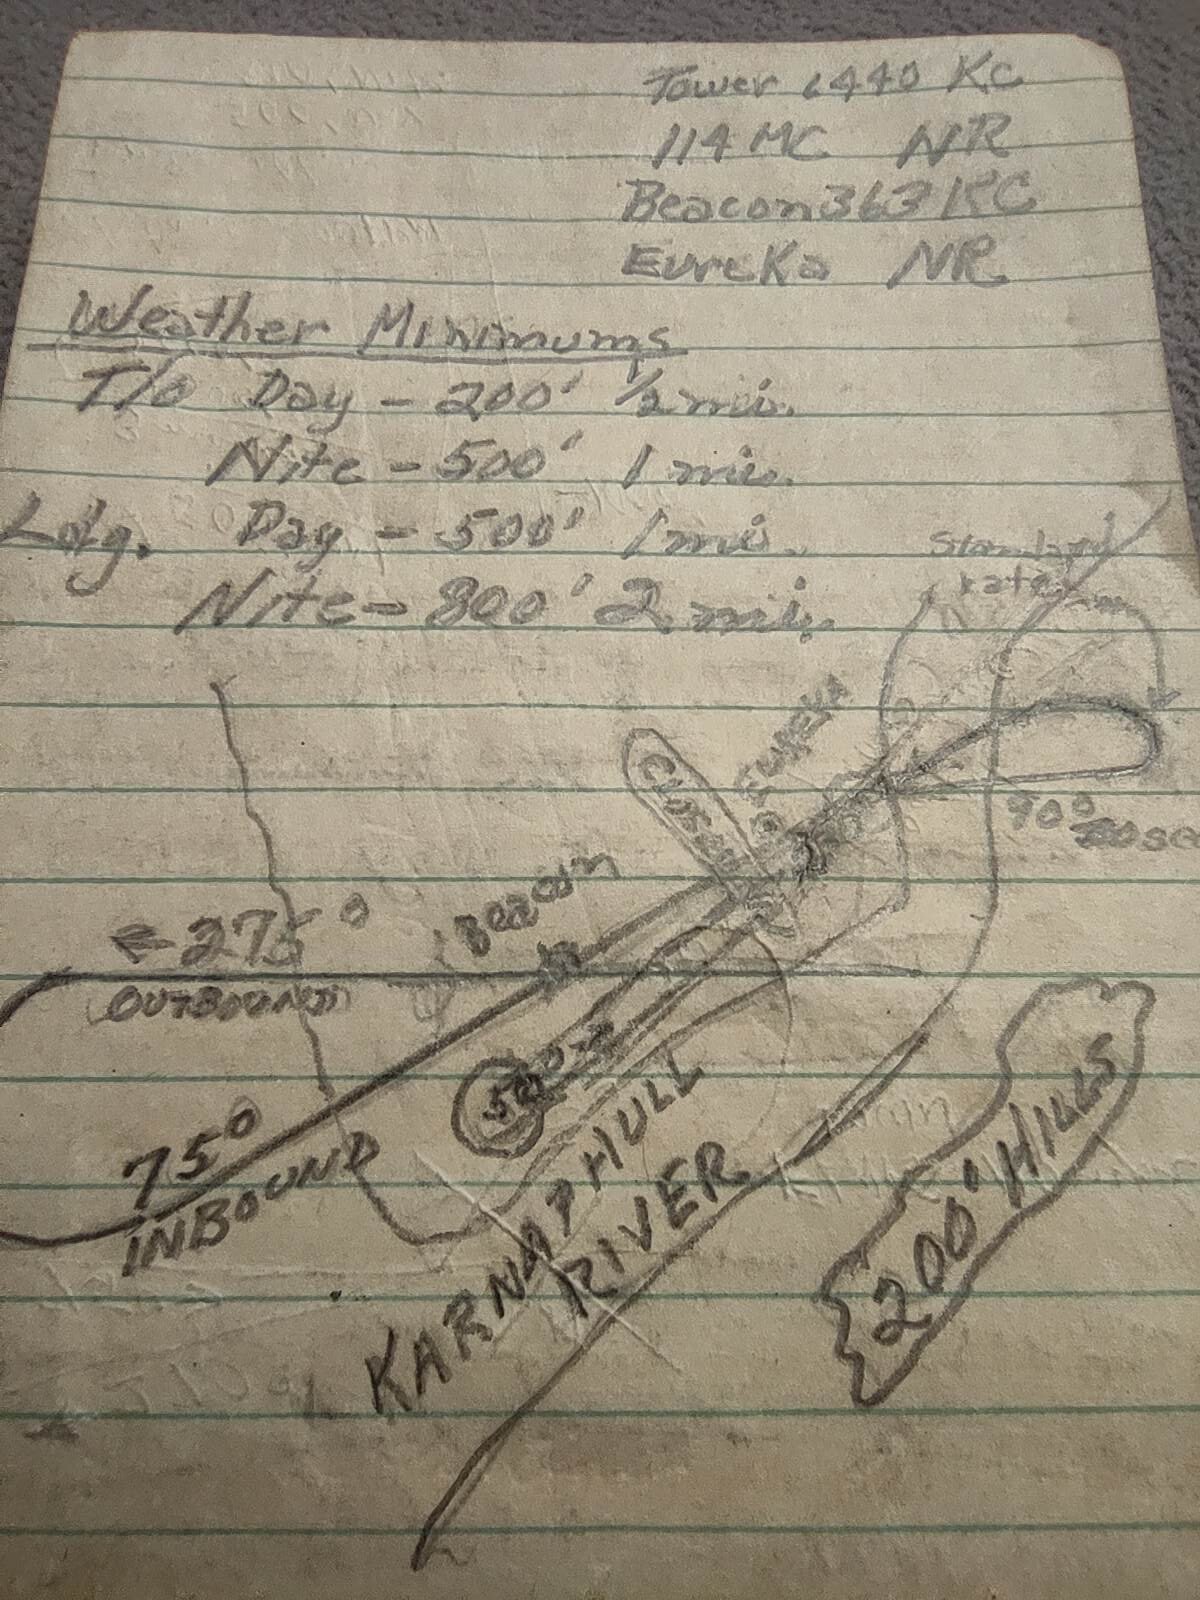 Tower 6440 KC
114 MC NR
Beacon 363 KC
Eureka NR
Weather Minimums
T/O Day - 200' 1/2 mi.
Nite - 500' 1 mi.
Ldg. Day - 500' 1 mi.
Nite - 800' 2 mi.
Standard
rate
EUREKA
CLOSED
90°
Beacon
← 275°
OUTBOUND
75°
INBOUND
KARNAPHULL
RIVER
200' HILLS